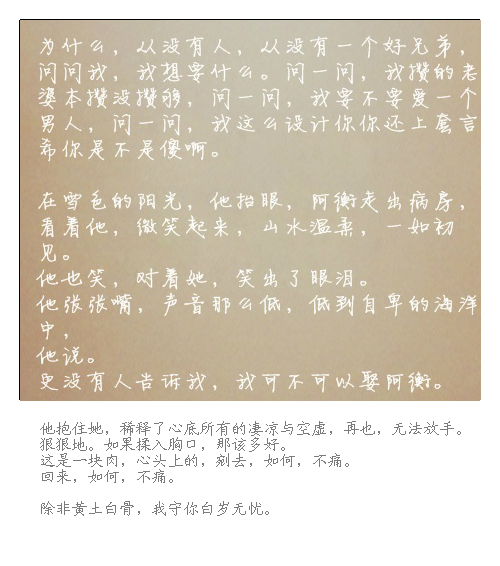 为什么，从没有人，从没有一个好兄弟，
问问我，我想要什么。问一问，我攒的老
婆本攒没攒够，问一问，我要不要爱一个
男人，问一问，我这么设计你你还上套言
希你是不是傻啊。
在雪色的阳光，他抬眼，阿衡走出病房，
看着他，微笑起来，山水温柔，一如初
见。
他也笑，对着她，笑出了眼泪。
他张张嘴，声音那么低，低到自卑的海洋
中，
他说。
更没有人告诉我，我可不可以娶阿衡。
他抱住她，稀释了心底所有的凄凉与空虚，再也，无法放手。
狠狠地。如果揉入胸口，那该多好。
这是一块肉，心头上的，剜去，如何，不痛。
回来，如何，不痛。
除非黄土白骨，我守你白岁无忧。